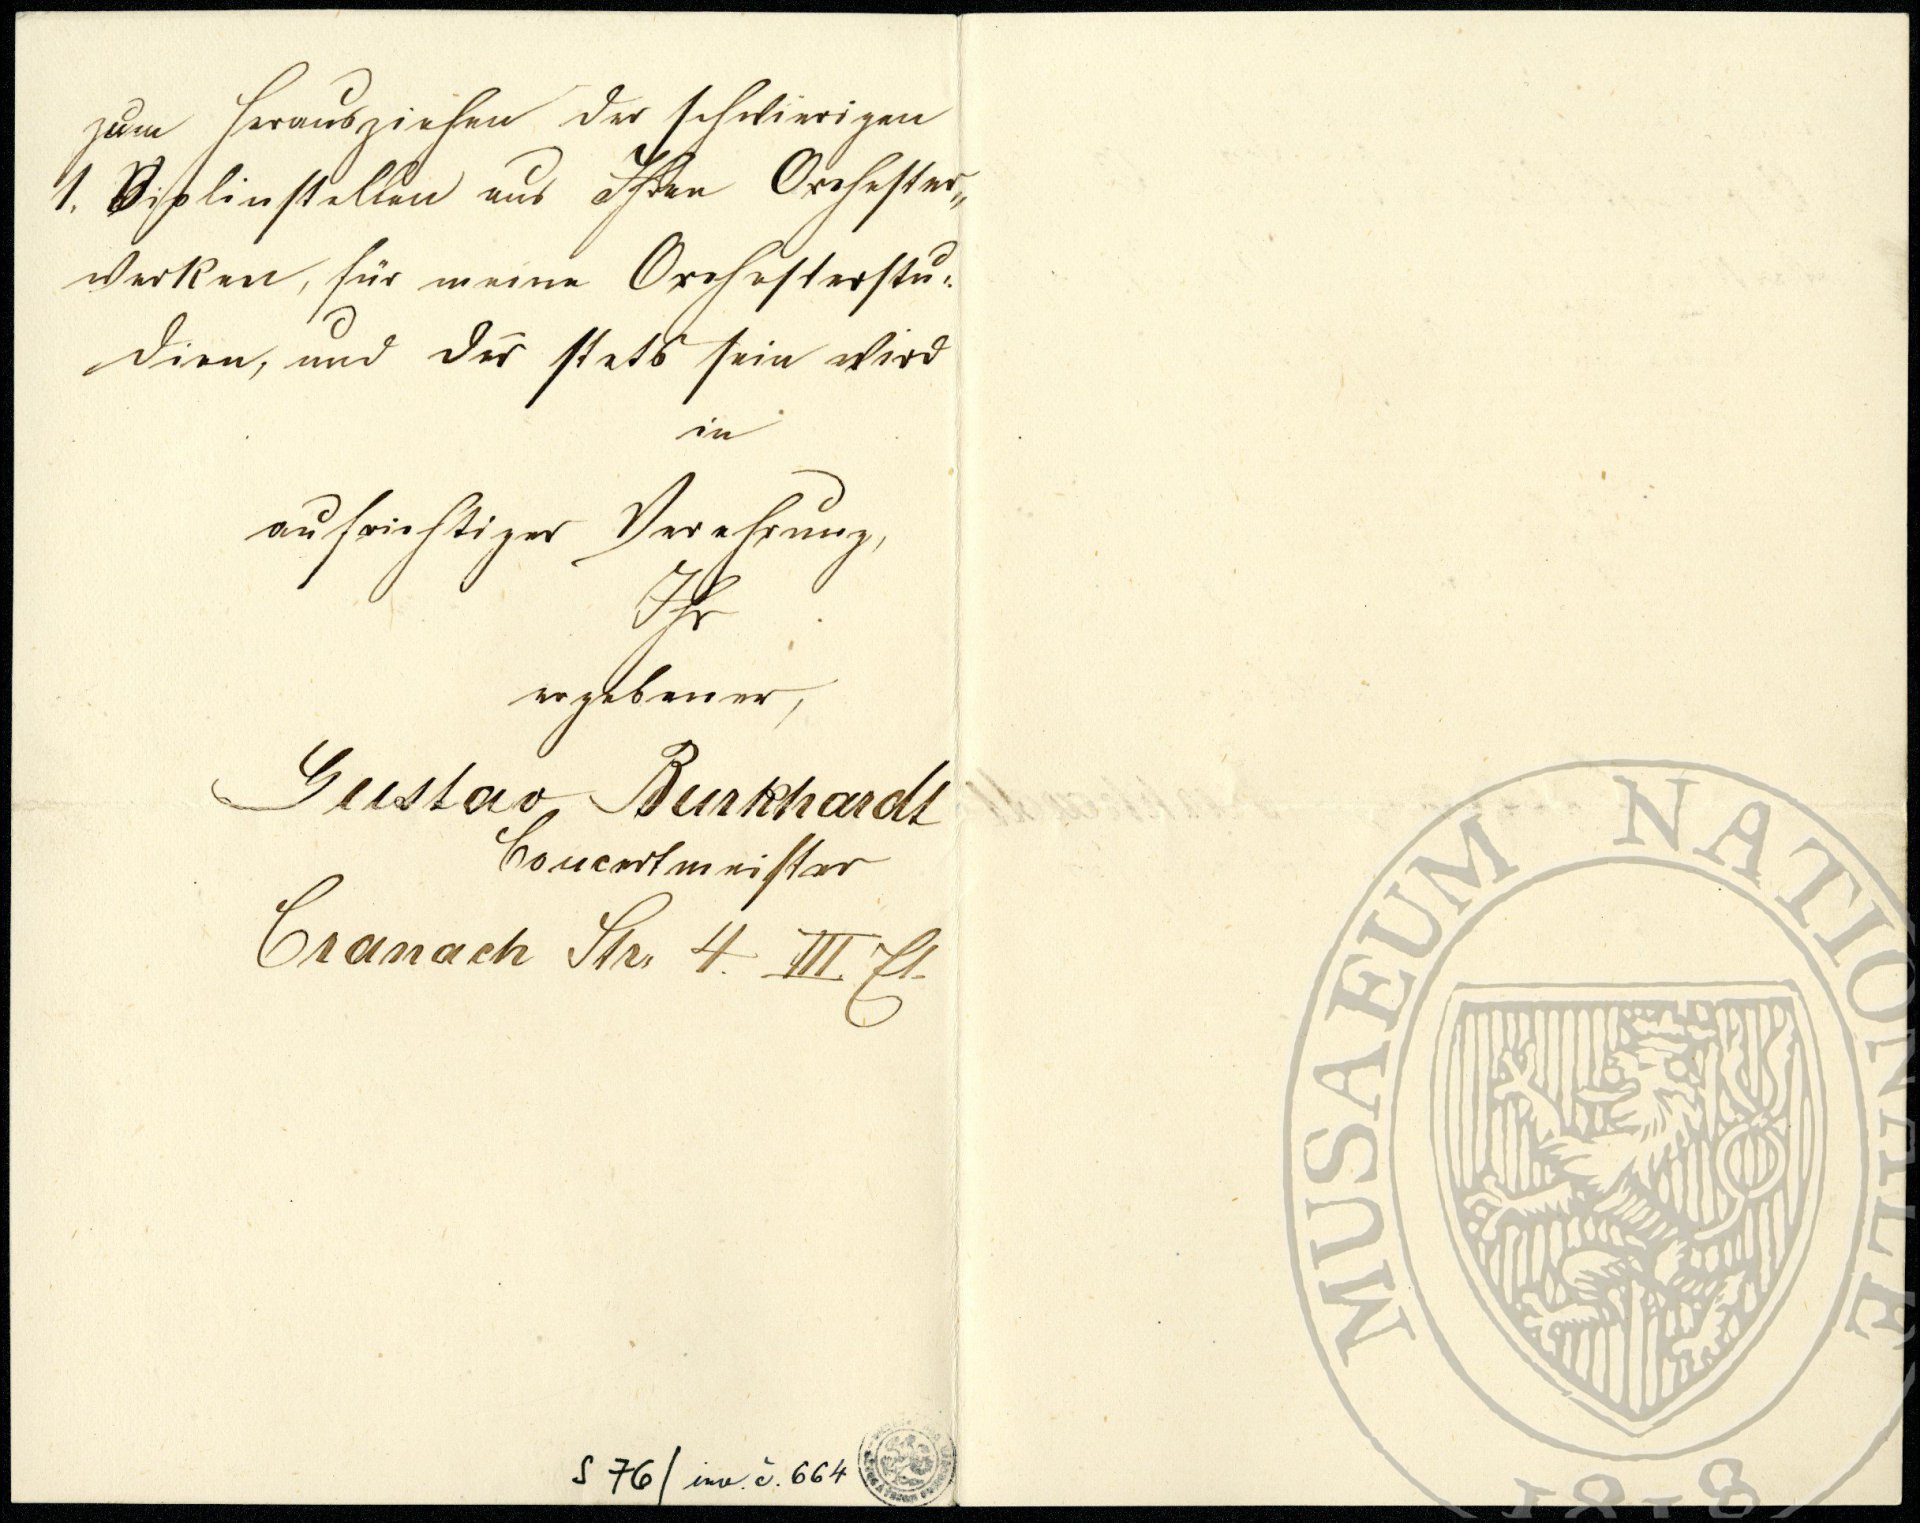 zum Herausziehen der schwierigen
1. Violinstellen aus Ihren Orchester„
werken, für meine Orchesterstu„
dien, und der stets sein wird
in
aufrichtiger Verehrung,
Ihr
ergebener,
Gustav Burkhardt
Concertmeister
Cranach Str. 4. III. Et.
S 76/ inv. č. 664
MUSAEUM NATIONALE
1818